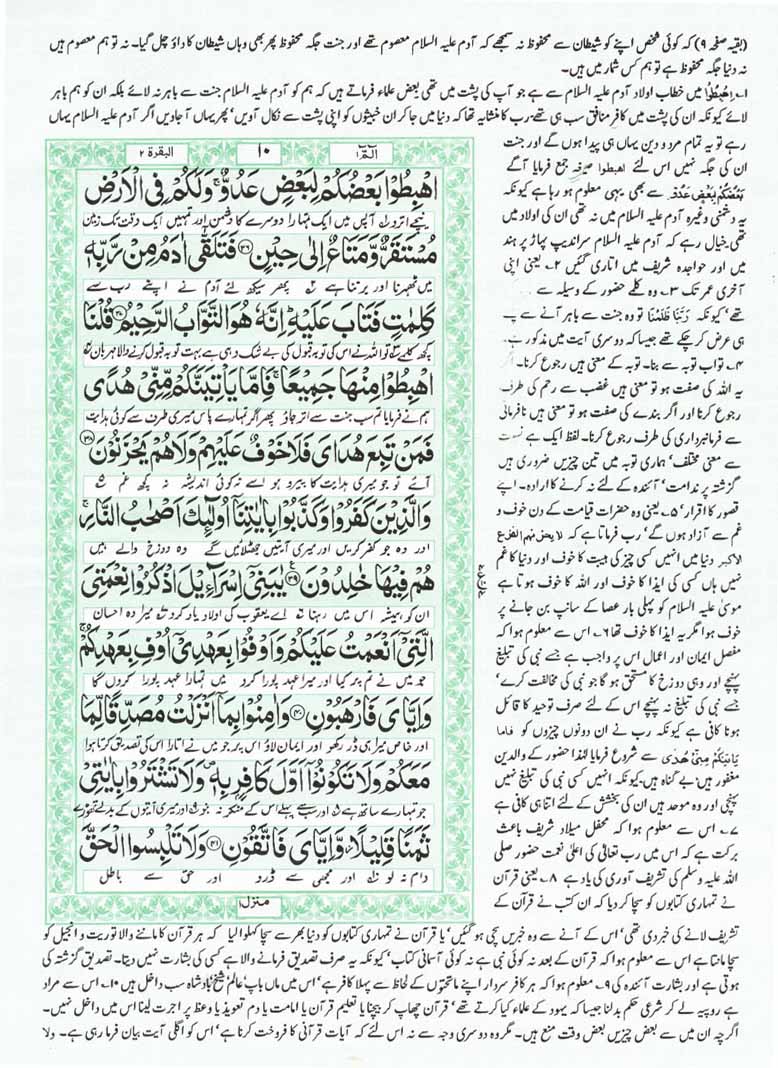 (بقیہ صفحہ ۹) کہ کوئی شخص اپنے کو شیطان سے محفوظ نہ سمجھے کہ آدم علیہ السلام معصوم تھے اور جنت جگہ محفوظ پھر بھی وہاں شیطان کا داؤ چل گیا۔ نہ تو ہم معصوم ہیں
نہ دنیا جگہ محفوظ ہے تو ہم کس شمار میں ہیں۔
۱۔ اھبطوا میں خطاب اولاد آدم علیہ السلام سے ہے جو آپ کی پشت میں تھی بعض علماء فرماتے ہیں کہ ہم کو آدم علیہ السلام جنت سے باہر نہ لائے بلکہ ان کو ہم باہر
لائے کیونکہ ان کی پشت میں کافر منافق سب ہی تھے۔ رب کا منشایہ تھا کہ دنیا میں جا کر ان خبیثوں کو اپنی پشت سے نکال آویں' پھر یہاں آجاویں اگر آدم علیہ السلام یہاں
رہے تو یہ تمام مردو دین یہاں ہی پیدا ہوں گے اور جنت
ان کی جگہ نہیں اس لئے اھبطوا صیغہ جمع فرمایا آگے
بعضکم لبعض عدو سے بھی یہی معلوم ہو رہا ہے کیونکہ
یہ دشمنی وغیرہ آدم علیہ السلام میں نہ تھی ان کی اولاد میں
تھی۔ خیال رہے کہ آدم علیہ السلام سراندیپ پہاڑ پر ہند
میں اور حوا جدہ شریف میں اتاری گئیں ۲۔ یعنی اپنی
آخری عمر تک ۳۔ وہ کلمے حضور کے وسیلہ سے
تھے' کیونکہ ربنا ظلمنا تو وہ جنت سے باہر آنے سے پہ
ہی عرض کر چکے تھے جیسا کہ دوسری آیت میں مذکور ہے۔
۴۔ تواب توبہ سے بنا۔ توبہ کے معنی ہیں رجوع کرنا۔
یہ اللہ کی صفت ہو تو معنی ہیں غضب سے رحم کی طرف
رجوع کرنا اور اگر بندے کی صفت ہو تو معنی ہیں نافرمانی
سے فرمانبرداری کی طرف رجوع کرنا۔ لفظ ایک ہے نسبت
سے معنی مختلف' ہماری توبہ میں تین چیزیں ضروری ہیں
گزشتہ پر ندامت' آئندہ کے لئے نہ کرنے کا ارادہ۔ اپنے
قصور کا اقرار' ۵۔ یعنی وہ حضرات قیامت کے دن خوف و
غم سے آزاد ہوں گے' رب فرماتا ہے کہ لا یحزنھم الفزع
الاکبر دنیا میں انہیں کسی چیز کی ہیبت کا خوف اور دنیا کا غم
نہیں ہاں کسی کی ایذا کا خوف اور اللہ کا خوف ہوتا ہے
موسیٰ علیہ السلام کو پہلی بار عصا کے سانپ بن جانے پر
خوف ہوا مگر یہ ایذا کا خوف تھا ۶۔ اس سے معلوم ہوا کہ
مفصل ایمان اور اعمال اس پر واجب ہے جسے نبی کی تبلیغ
پہنچے اور وہی دوزخ کا مستحق ہو گا جو نبی کی مخالفت کرے'
جسے نبی کی تبلیغ نہ پہنچے اس کے لئے صرف توحید کا قائل
ہونا کافی ہے کیونکہ رب نے ان دونوں چیزوں کو فاما
یاتینکم منی ھدی سے شروع فرمایا لہٰذا حضور کے والدین
مغفور ہیں' بے گناہ ہیں۔ کیونکہ انہیں کسی نبی کی تبلیغ نہیں
پہنچی اور وہ موحد ہیں ان کی بخشش کے لئے اتنا ہی کافی ہے
۷۔ اس سے معلوم ہوا کہ محفل میلاد شریف باعث
برکت ہے کہ اس میں رب تعالٰی کی اعلٰی نعمت حضور صلی
اللہ علیہ وسلم کی تشریف آوری کی یاد ہے ۸۔ یعنی قرآن
نے تمہاری کتابوں کو سچا کر دیا کہ ان کتب نے قرآن کے
البقرۃ ۲
۱۰
الٓمّٓ ۱
اهْبِطُوْا بَعْضُكُمْ لِبَعْضٍ عَدُوٌّ ۚ وَلَكُمْ فِي الْاَرْضِ
نیچے اترو آپس میں ایک تمہارا دوسرے کا دشمن اور تمہیں ایک وقت تک زمین
مُسْتَقَرٌّ وَّمَتَاعٌ اِلٰى حِيْنٍ ﴿۳۶﴾ فَتَلَقّٰٓى اٰدَمُ مِنْ رَّبِّهٖ
میں ٹھہرنا اور برتنا ہے پھر سیکھ لئے آدم نے اپنے رب سے
كَلِمٰتٍ فَتَابَ عَلَيْهِ ؕ اِنَّهٗ هُوَ التَّوَّابُ الرَّحِيْمُ ﴿۳۷﴾ قُلْنَا
کچھ کلمے تو اللہ نے اس کی توبہ قبول کی بے شک وہی ہے بہت توبہ قبول کرنے والا مہربان
اهْبِطُوْا مِنْهَا جَمِيْعًا ۚ فَاِمَّا يَاْتِيَنَّكُمْ مِّنِّيْ هُدًى
ہم نے فرمایا تم سب جنت سے اتر جاؤ پھر اگر تمہارے پاس میری طرف سے کوئی ہدایت
فَمَنْ تَبِعَ هُدَايَ فَلَا خَوْفٌ عَلَيْهِمْ وَلَا هُمْ يَحْزَنُوْنَ ﴿۳۸﴾
آئے تو جو میری ہدایت کا پیرو ہو اسے نہ کوئی اندیشہ نہ کچھ غم
وَالَّذِيْنَ كَفَرُوْا وَكَذَّبُوْا بِاٰيٰتِنَآ اُولٰٓئِكَ اَصْحٰبُ النَّارِ ۚ
اور وہ جو کفر کریں اور میری آیتیں جھٹلائیں گے وہ دوزخ والے ہیں
هُمْ فِيْهَا خٰلِدُوْنَ ﴿۳۹﴾ يٰبَنِيْٓ اِسْرَآءِيْلَ اذْكُرُوْا نِعْمَتِيَ
ان کو ہمیشہ اس میں رہنا اے یعقوب کی اولاد یاد کرو میرا وہ احسان
الَّتِيْٓ اَنْعَمْتُ عَلَيْكُمْ وَاَوْفُوْا بِعَهْدِيْٓ اُوْفِ بِعَهْدِكُمْ ۚ
جو میں نے تم پر کیا اور میرا عہد پورا کرو میں تمہارا عہد پورا کروں گا
وَاِيَّايَ فَارْهَبُوْنِ ﴿۴۰﴾ وَاٰمِنُوْا بِمَآ اَنْزَلْتُ مُصَدِّقًا لِّمَا
اور خاص میرا ہی ڈر رکھو اور ایمان لاؤ اس پر جو میں نے اتارا اس کی تصدیق کرتا ہوا
مَعَكُمْ وَلَا تَكُوْنُوْٓا اَوَّلَ كَافِرٍۭ بِهٖ ۪ وَلَا تَشْتَرُوْا بِاٰيٰتِيْ
جو تمہارے ساتھ ہے اور سب سے پہلے اس کے منکر نہ بنو اور میری آیتوں کے بدلے تھوڑے
ثَمَنًا قَلِيْلًا ؗ وَّاِيَّايَ فَاتَّقُوْنِ ﴿۴۱﴾ وَلَا تَلْبِسُوا الْحَقَّ
دام نہ لو اور مجھی سے ڈرو اور حق سے باطل
منزل ۱
تشریف لانے کی خبر دی تھی' اس کے آنے سے وہ خبریں سچی ہو گئیں' یا قرآن نے تمہاری کتابوں کو دنیا بھر سے سچا کہلوا لیا کہ ہر قرآن کا ماننے والا توریت و انجیل کو
سچا مانتا ہے اس سے معلوم ہوا کہ قرآن کے بعد نہ کوئی نبی ہے نہ کوئی آسمانی کتاب' کیونکہ یہ صرف تصدیق فرمانے والا ہے کسی کی بشارت نہیں دیتا۔ تصدیق گزشتہ کی
ہوتی ہے اور بشارت آئندہ کی ۹۔ معلوم ہوا کہ ہر کافر سردار اپنے ماتحتوں کے لحاظ سے پہلا کافر ہے' اس میں ماں باپ' عالم' شیخ' بادشاہ سب داخل ہیں ۱۰۔ اس سے مراد
ہے روپیہ لے کر شرعی حکم بدلنا جیسا کہ یہود کے علماء کیا کرتے تھے' قرآن چھاپ کر بیچنا یا تعلیم قرآن یا امامت یا دم تعویذ یا وعظ پر اجرت لینا اس میں داخل نہیں۔
اگرچہ ان میں سے بعض چیزیں بعض وقت منع ہیں۔ مگر وہ دوسری وجہ سے نہ اس لئے کہ آیات قرآنی کا فروخت کرنا ہے' اس کو اگلی آیت بیان فرما رہی ہے۔ ولا